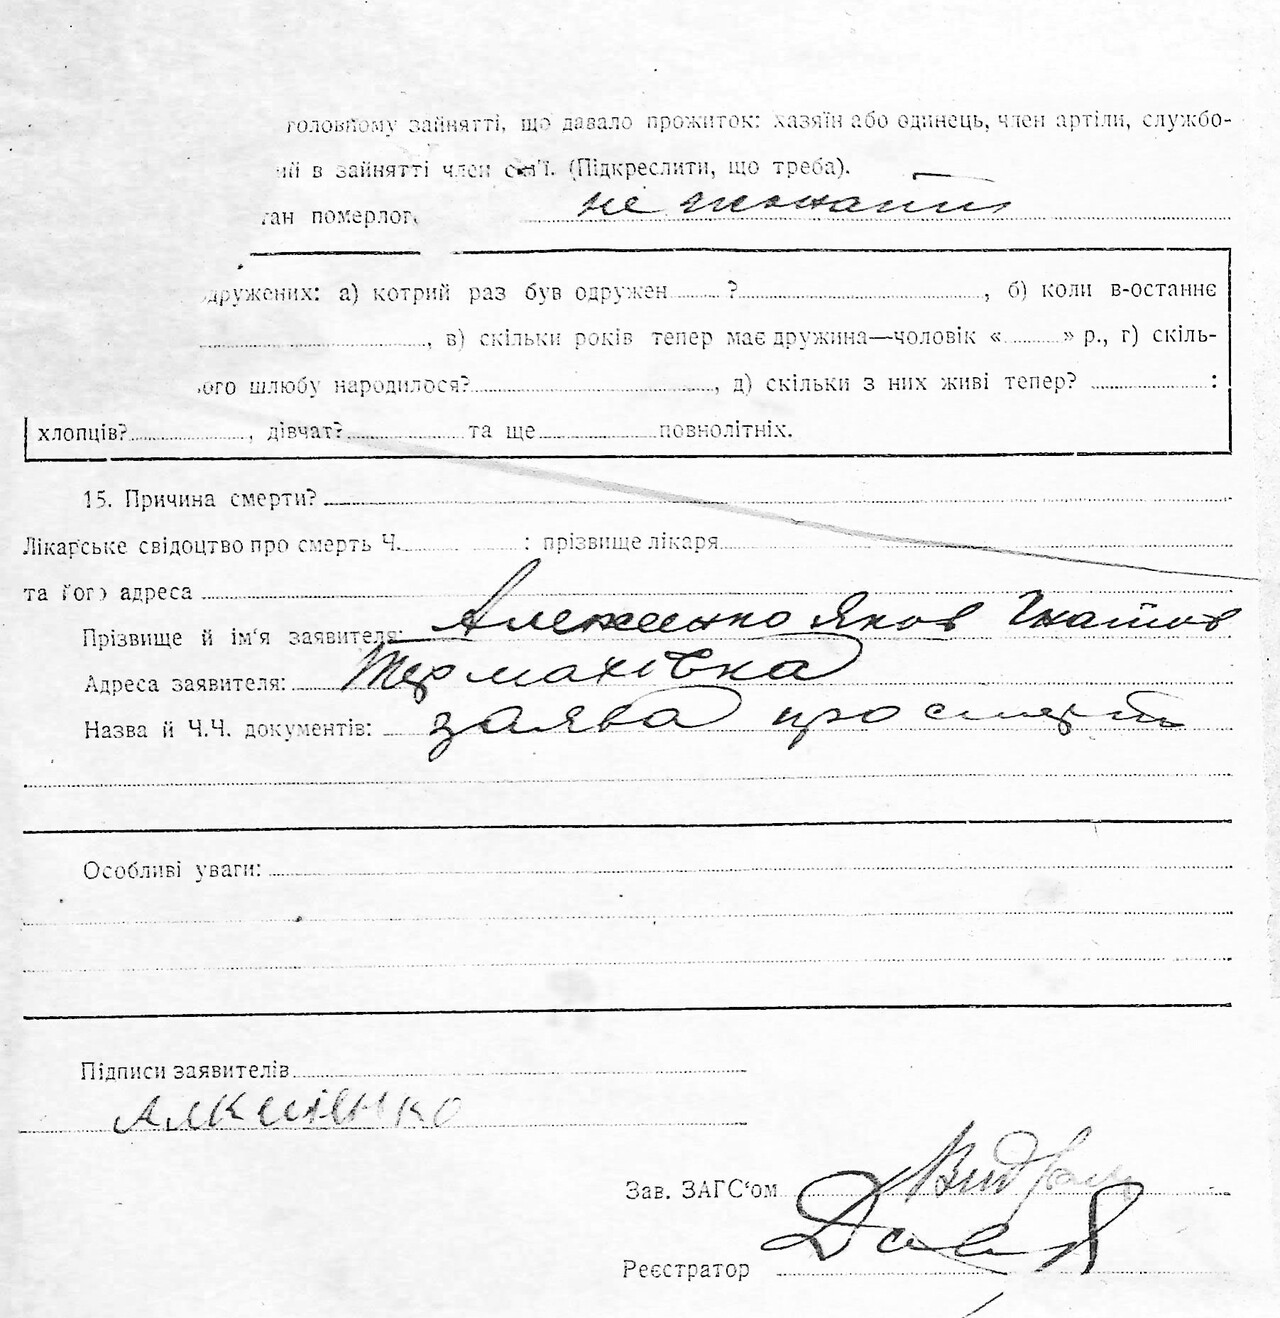 головному зайнятті, що давало прожиток: хазяїн або одинець, член артіли, службо-
ий в зайнятті член сем'ї. (Підкреслити, що треба).
тан померлого не жонатий
одружених: а) котрий раз був одружен ? , б) коли в-останнє
, в) скільки років тепер має дружина—чоловік « » р., г) скіль-
ого шлюбу народилося? , д) скільки з них живі тепер? :
хлопців? , дівчат? та ще повнолітніх.
15. Причина смерти?
Лікарське свідоцтво про смерть Ч. : прізвище лікаря
та його адреса
Прізвище й ім'я заявителя: Яков Гнатов
Адреса заявителя: Термахівка
Назва й Ч.Ч. документів: заява про смерть
Особливі уваги:
Підписи заявителів
Зав. ЗАГС'ом
Реєстратор